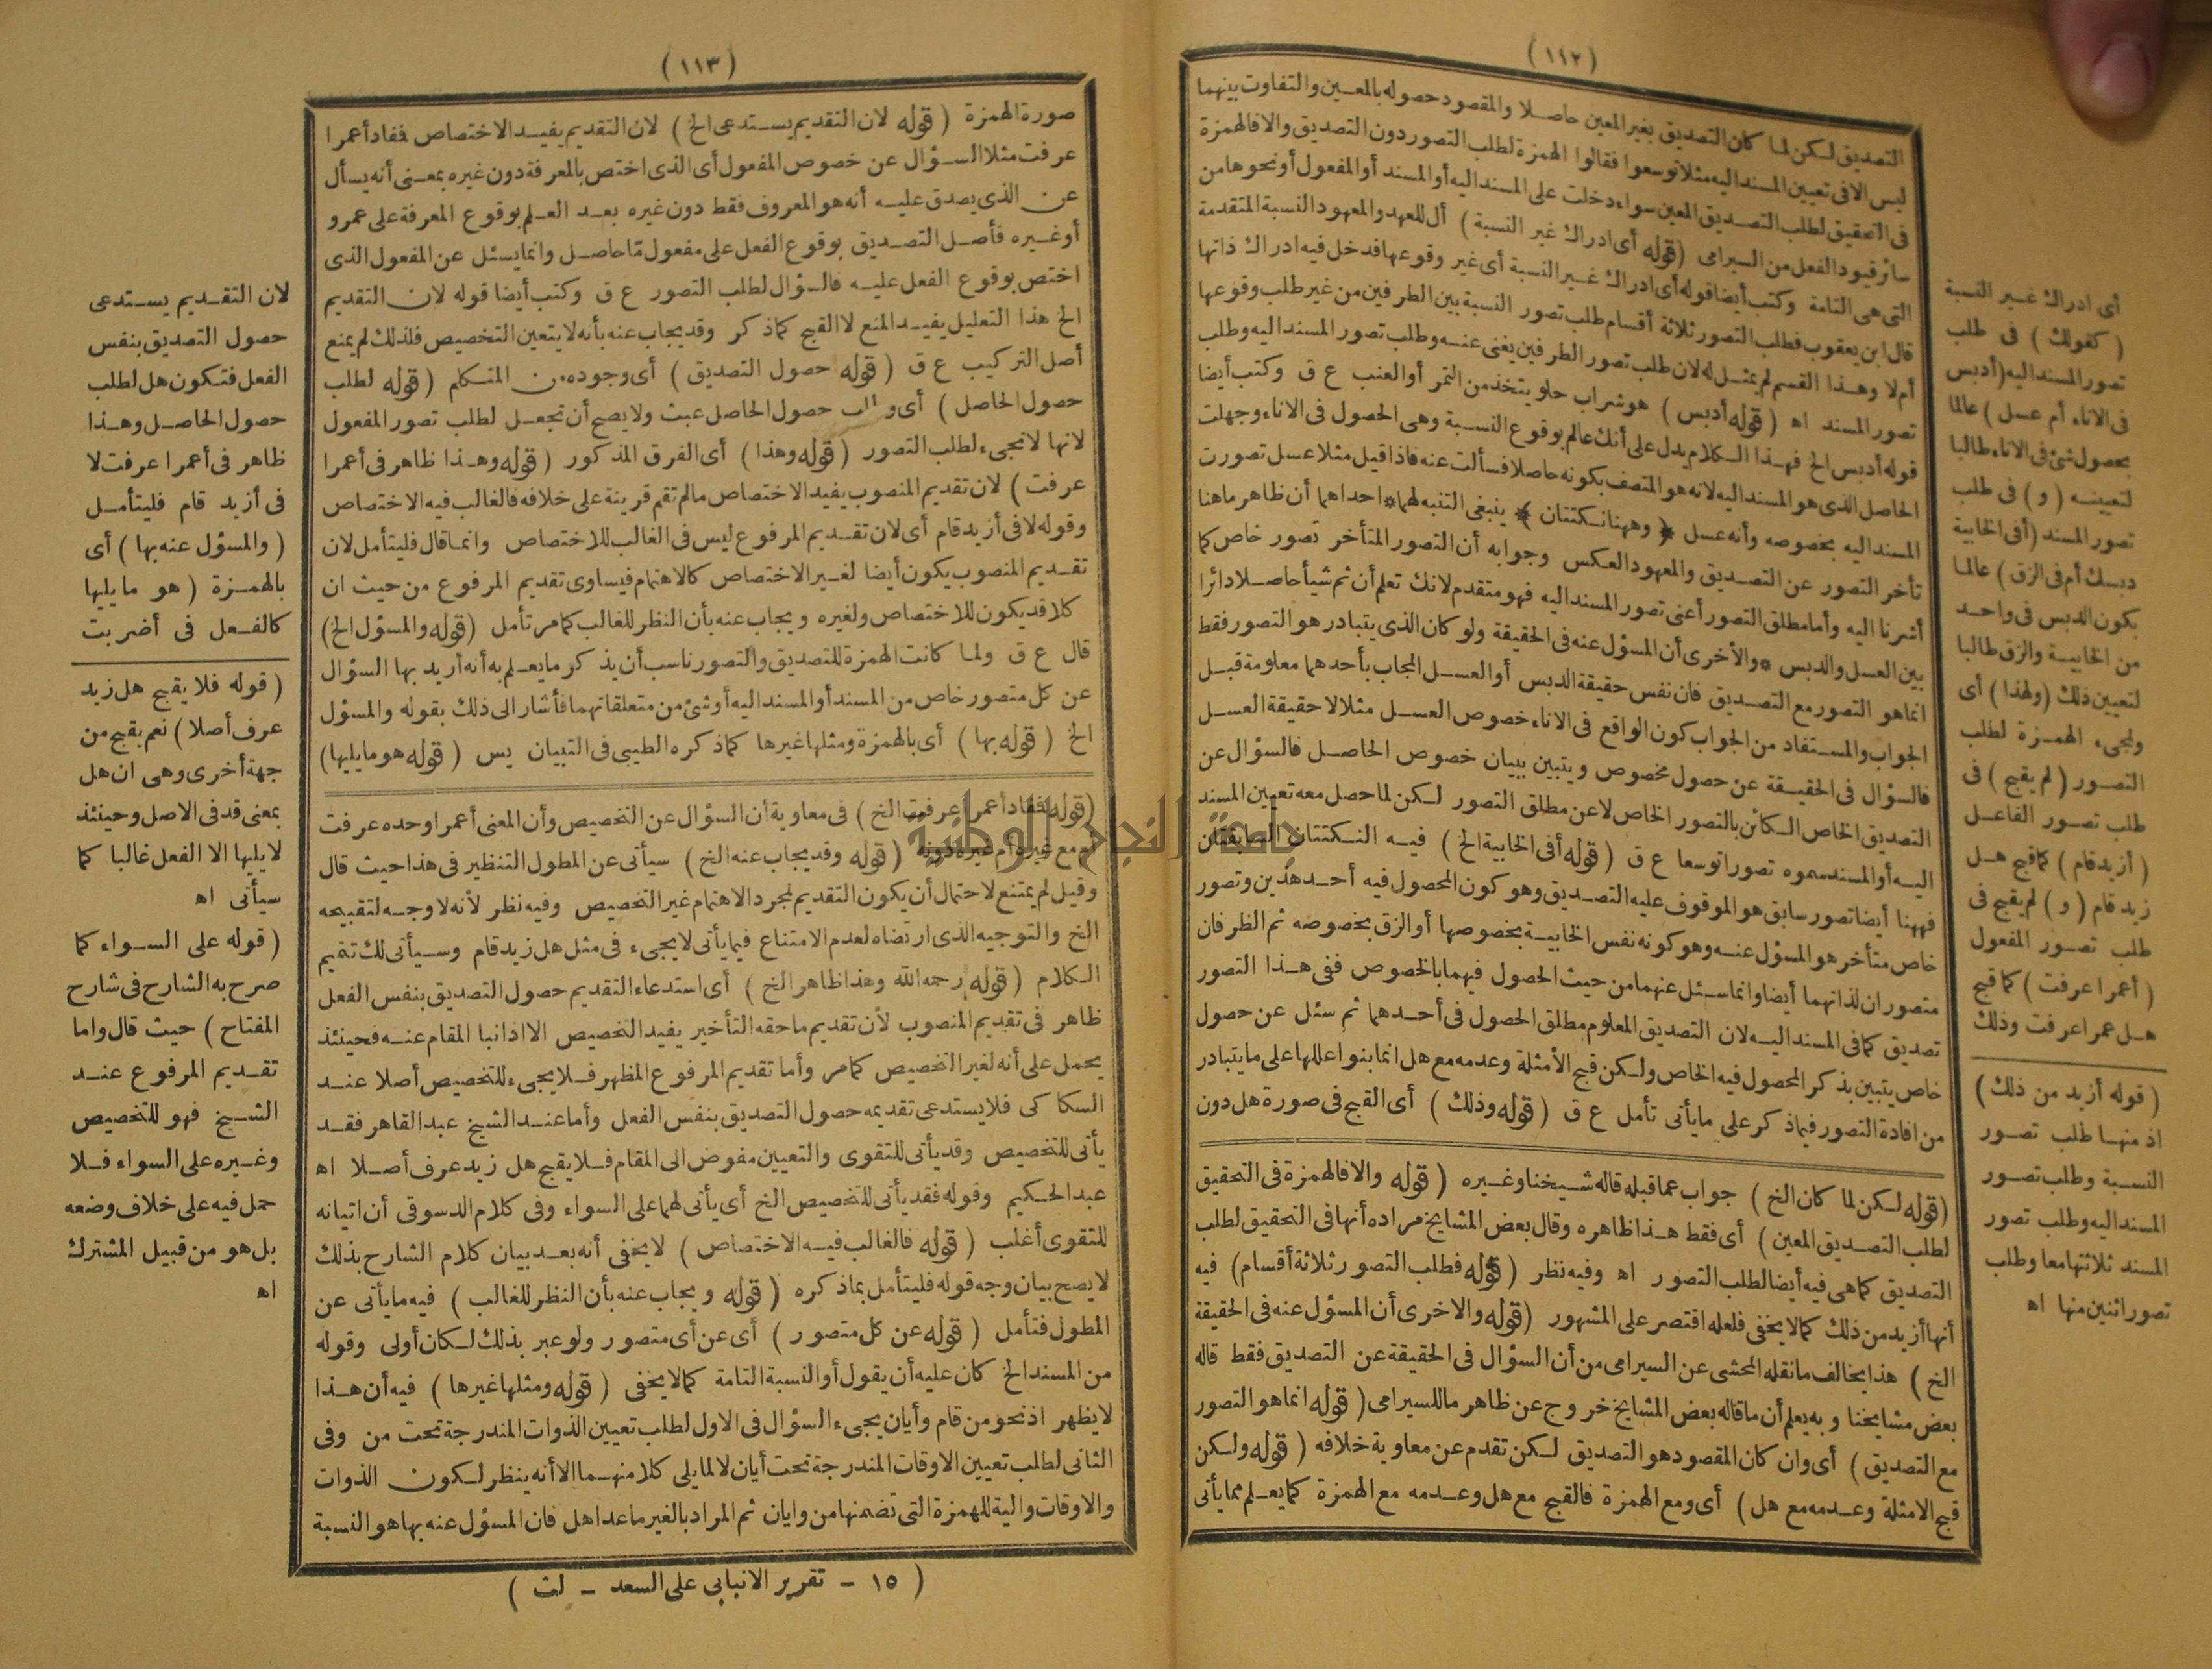 (١١٢)
التصديق لكن لما كان التصديق بغير المعين حاصلا والمقصود حصوله بالمعين والتفاوت بينهما
ليس الا فى تعيين المسند اليه مثلا توسعوا فقالوا الهمزة لطلب التصور دون التصديق والا فالهمزة
فى التحقيق لطلب التصديق المعين سواء دخلت على المسند اليه أو المسند أو المفعول أو نحوها من
سائر قيود الفعل من السيرامى (قوله أى ادراك غير النسبة) أل للعهد والمعهود النسبة المتقدمة
التى هى التامة وكتب أيضا قوله أى ادراك غير النسبة أى غير وقوعها فدخل فيه ادراك ذاتها
قال ابن يعقوب فطلب التصور ثلاثة أقسام طلب تصور النسبة بين الطرفين من غير طلب وقوعها
أم لا وهذا القسم لم يمثل له لان طلب تصور الطرفين يغنى عنه وطلب تصور المسند اليه وطلب
تصور المسند اه (قوله أدبس) هو شراب حلو يتخذ من التمر أو العنب ع ق وكتب أيضا
قوله أدبس الخ فهذا الكلام يدل على أنك عالم بوقوع النسبة وهى الحصول فى الاناء وجهلت
الحاصل الذى هو المسند اليه لانه هو المتصف بكونه حاصلا فسألت عنه فاذا قيل مثلا عسل تصورت
المسند اليه بخصوصه وأنه عسل ﴿وههنا نكتتان﴾ ينبغى التنبه لهما * احداهما أن ظاهر ما هنا
تأخر التصور عن التصديق والمعهود العكس وجوابه أن التصور المتأخر تصور خاص كما
أشرنا اليه وأما مطلق التصور أعنى تصور المسند اليه فهو متقدم لانك تعلم أن ثم شيأ حاصلا دائرا
بين العسل والدبس * والأخرى أن المسؤل عنه فى الحقيقة ولو كان الذى يتبادر هو التصور فقط
انما هو التصور مع التصديق فان نفس حقيقة الدبس أو العسل المجاب بأحدهما معلومة قبل
الجواب والمستفاد من الجواب كون الواقع فى الاناء خصوص العسل مثلا لا حقيقة العسل
فالسؤال فى الحقيقة عن حصول مخصوص ويتبين ببيان خصوص الحاصل فالسؤال عن
التصديق الخاص الكائن بالتصور الخاص لا عن مطلق التصور لكن لما حصل معه تعيين المسند
اليه أو المسند سموه تصورا توسعا ع ق (قوله أفى الخابية الخ) فيه النكتتان السابقتان
فههنا أيضا تصور سابق هو الموقوف عليه التصديق وهو كون المحصول فيه أحد هذين وتصور
خاص متأخر هو المسؤل عنه وهو كونه نفس الخابية بخصوصها أو الزق بخصوصه ثم الظرفان
متصوران لذاتهما أيضا وانما سئل عنهما من حيث الحصول فيهما بالخصوص ففى هذا التصور
تصديق كما فى المسند اليه لان التصديق المعلوم مطلق الحصول فى أحدهما ثم سئل عن حصول
خاص يتبين بذكر المحصول فيه الخاص ولكن قبح الأمثلة وعدمه مع هل انما بنوا عللها على ما يتبادر
من افادة التصور فيما ذكر على ما يأتى تأمل ع ق (قوله وذلك) أى القبح فى صورة هل دون
(قوله لكن لما كان الخ) جواب عما قبله قاله شيخنا وغيره (قوله والا فالهمزة فى التحقيق
لطلب التصديق المعين) أى فقط هذا ظاهره وقال بعض المشايخ مراده أنها فى التحقيق لطلب
التصديق كما هى فيه أيضا لطلب التصور اه وفيه نظر (قوله فطلب التصور ثلاثة أقسام) فيه
أنها أزيد من ذلك كما لا يخفى فلعله اقتصر على المشهور (قوله والاخرى أن المسؤل عنه فى الحقيقة
الخ) هذا يخالف ما نقله المحشى عن السيرامى من أن السؤال فى الحقيقة عن التصديق فقط قاله
بعض مشايخنا وبه يعلم أن ما قاله بعض المشايخ خروج عن ظاهر ما للسيرامى (قوله انما هو التصور
مع التصديق) أى وان كان المقصود هو التصديق لكن تقدم عن معاوية خلافه (قوله ولكن
قبح الامثلة وعدمه مع هل) أى ومع الهمزة فالقبح مع هل وعدمه مع الهمزة كما يعلم مما يأتى
أى ادراك غير النسبة
(كقولك) فى طلب
تصور المسند اليه (أدبس
فى الاناء أم عسل) عالما
بحصول شئ فى الاناء طالبا
لتعيينه (و) فى طلب
تصور المسند (أفى الخابية
دبسك أم فى الزق) عالما
بكون الدبس فى واحد
من الخابية والزق طالبا
لتعيين ذلك (ولهذا) أى
ولمجىء الهمزة لطلب
التصور (لم يقبح) فى
طلب تصور الفاعل
(أزيد قام) كما قبح هل
زيد قام (و) لم يقبح فى
طلب تصور المفعول
(أعمرا عرفت) كما قبح
هل عمرا عرفت وذلك
(قوله أزيد من ذلك)
اذ منها طلب تصور
النسبة وطلب تصور
المسند اليه وطلب تصور
المسند ثلاثتها معا وطلب
تصور اثنين منها اه
(١١٣)
صورة الهمزة (قوله لان التقديم يستدعى الخ) لان التقديم يفيد الاختصاص فمفاد أعمرا
عرفت مثلا السؤال عن خصوص المفعول أى الذى اختص بالمعرفة دون غيره بمعنى أنه يسأل
عن الذى يصدق عليه أنه هو المعروف فقط دون غيره بعد العلم بوقوع المعرفة على عمرو
أو غيره فأصل التصديق بوقوع الفعل على مفعول ما حاصل وانما يسئل عن المفعول الذى
اختص بوقوع الفعل عليه فالسؤال لطلب التصور ع ق وكتب أيضا قوله لان التقديم
الخ هذا التعليل يفيد المنع لا القبح كما ذكر وقد يجاب عنه بأنه لا يتعين التخصيص فلذلك لم يمنع
أصل التركيب ع ق (قوله حصول التصديق) أى وجوده من المتكلم (قوله لطلب
حصول الحاصل) أى و حصول الحاصل عبث ولا يصح أن تجعل لطلب تصور المفعول
لانها لا تجىء لطلب التصور (قوله وهذا) أى الفرق المذكور (قوله وهذا ظاهر فى أعمرا
عرفت) لان تقديم المنصوب يفيد الاختصاص ما لم تقم قرينة على خلافه فالغالب فيه الاختصاص
وقوله لا فى أزيد قام أى لان تقديم المرفوع ليس فى الغالب للاختصاص وانما قال فليتأمل لان
تقديم المنصوب يكون أيضا لغير الاختصاص كالاهتمام فيساوى تقديم المرفوع من حيث ان
كلا قد يكون للاختصاص ولغيره ويجاب عنه بأن النظر للغالب كما مر تأمل (قوله والمسؤل الخ)
قال ع ق ولما كانت الهمزة للتصديق والتصور ناسب أن يذكر ما يعلم به أنه أريد بها السؤال
عن كل متصور خاص من المسند أو المسند اليه أو شئ من متعلقاتهما فأشار الى ذلك بقوله والمسؤل
الخ (قوله بها) أى بالهمزة ومثلها غيرها كما ذكره الطيبى فى التبيان يس (قوله هو ما يليها)
(قوله فمفاد أعمرا عرفت الخ) فى معاوية أن السؤال عن التخصيص وأن المعنى أعمرا وحده عرفت
أم مع غيره أم غيره دونه (قوله وقد يجاب عنه الخ) سيأتى عن المطول التنظير فى هذا حيث قال
وقيل لم يمتنع لاحتمال أن يكون التقديم لمجرد الاهتمام غير التخصيص وفيه نظر لأنه لا وجه لتقبيحه
الخ والتوجيه الذى ارتضاه لعدم الامتناع فيما يأتى لا يجىء فى مثل هل زيد قام وسيأتى لك تتميم
الكلام (قوله رحمه الله وهذا ظاهر الخ) أى استدعاء التقديم حصول التصديق بنفس الفعل
ظاهر فى تقديم المنصوب لأن تقديم ما حقه التأخير يفيد التخصيص الا اذا نبا المقام عنه فحينئذ
يحمل على أنه لغير التخصيص كما مر وأما تقديم المرفوع المظهر فلا يجىء للتخصيص أصلا عند
السكاكى فلا يستدعى تقديمه حصول التصديق بنفس الفعل وأما عند الشيخ عبد القاهر فقد
يأتى للتخصيص وقد يأتى للتقوى والتعيين مفوض الى المقام فلا يقبح هل زيد عرف أصلا اه
عبد الحكيم وقوله فقد يأتى للتخصيص الخ أى يأتى لهما على السواء وفى كلام الدسوقى أن اتيانه
للتقوى أغلب (قوله فالغالب فيه الاختصاص) لا يخفى أنه بعد بيان كلام الشارح بذلك
لا يصح بيان وجه قوله فليتأمل بما ذكره (قوله ويجاب عنه بأن النظر للغالب) فيه ما يأتى عن
المطول فتأمل (قوله عن كل متصور) أى عن أى متصور ولو عبر بذلك لكان أولى وقوله
من المسند الخ كان عليه أن يقول أو النسبة التامة كما لا يخفى (قوله ومثلها غيرها) فيه أن هذا
لا يظهر اذ نحو من قام وأيان يجىء السؤال فى الاول لطلب تعيين الذوات المندرجة تحت من وفى
الثانى لطلب تعيين الاوقات المندرجة تحت أيان لا لما يلى كلا منهما الا أنه ينظر لكون الذوات
والاوقات والية للهمزة التى تضمنها من وايان ثم المراد بالغير ما عدا هل فان المسؤل عنه بها هو النسبة
لان التقديم يستدعى
حصول التصديق بنفس
الفعل فتكون هل لطلب
حصول الحاصل وهذا
ظاهر فى أعمرا عرفت لا
فى أزيد قام فليتأمل
(والمسؤل عنه بها) أى
بالهمزة (هو ما يليها
كالفعل فى أضربت
(قوله فلا يقبح هل زيد
عرف أصلا) نعم يقبح من
جهة أخرى وهى ان هل
بمعنى قد فى الاصل وحينئذ
لا يليها الا الفعل غالبا كما
سيأتى اه
(قوله على السواء كما
صرح به الشارح فى شارح
المفتاح) حيث قال واما
تقديم المرفوع عند
الشيخ فهو للتخصيص
وغيره على السواء فلا
حمل فيه على خلاف وضعه
بل هو من قبيل المشترك
اه
(١٥ - تقرير الانبابى على السعد - لث)
جامعة النجاح الوطنية